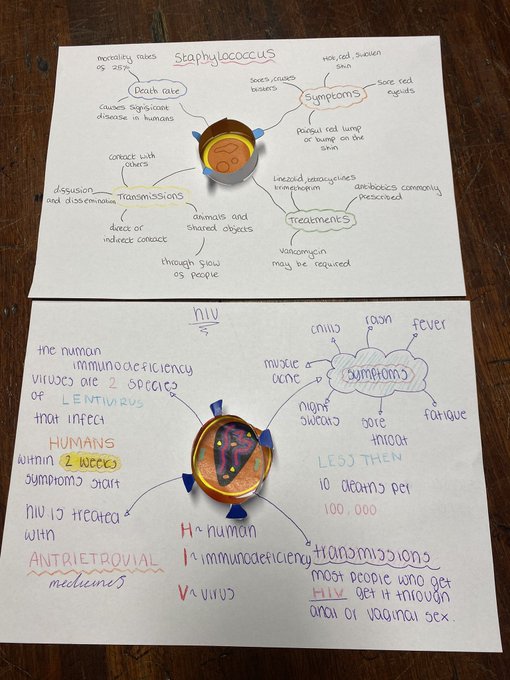 Staphylococcus
mortality rates
of 25%
Death rate
causes significant
disease in humans
Hot, red, swollen
skin
sores, causes
blisters
Symptoms
sore red
eyelids
painful red lump
or bump on the
skin
contact with
others
dissusion
and dissemination
Transmissions
direct or
indirect contact
animals and
shared objects
through flow
of people
linezolid, tetracyclines
trimethoprim
antibiotics commonly
prescribed
Treatments
vancomycin
may be required
HIV
the human
immunodeficiency
viruses are 2 species
of LENTIVIRUS
that infect
HUMANS
within 2 weeks
symptoms start
HIV is treated
with
ANTRIETROVIAL
medicines
H~human
I~immunodeficiency
V~virus
chills
rash
fever
muscle
acne
symptoms
night
sweats
sore
throat
fatigue
LESS THEN
10 deaths per
100,000
transmissions
most people who get
HIV get it through
anal or vaginal sex.